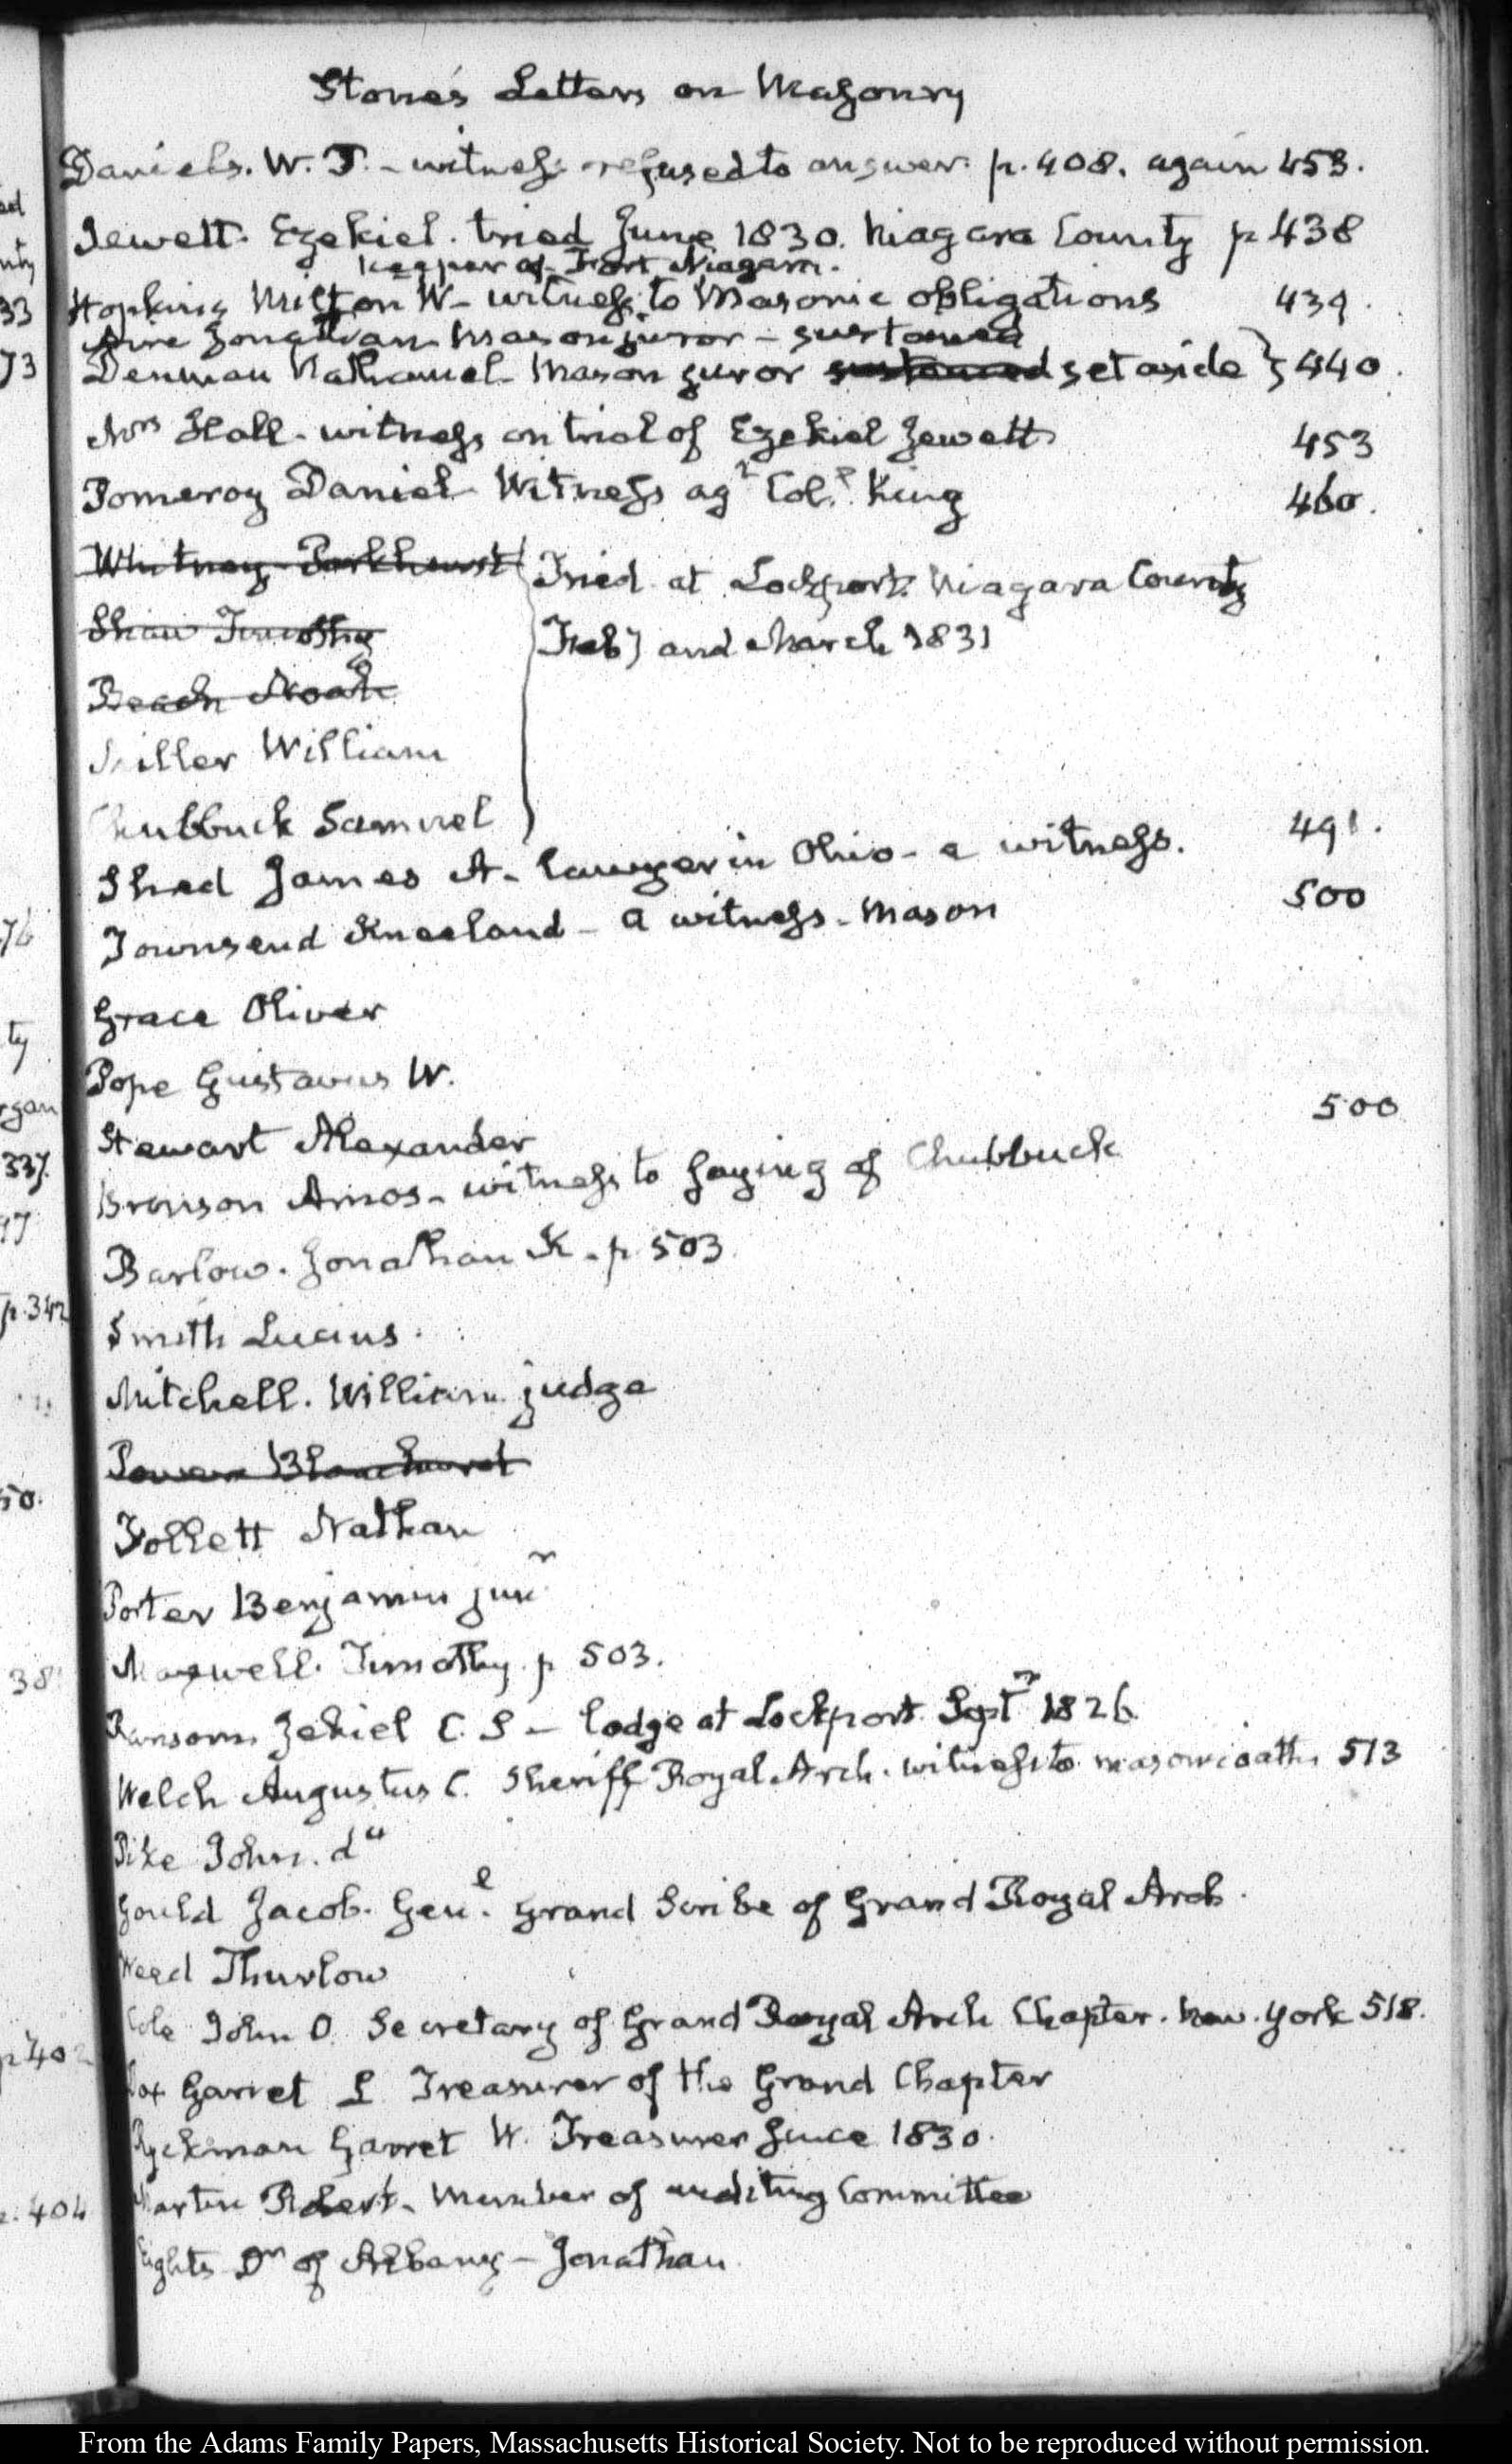 Stone's Letters on Masonry
Daniels. W. T. - witness refused to answer. p. 408. again 453.
Jewett. Ezekiel. tried June 1830. Niagara County p 438
keeper of Fort Niagara.
Hopkins Milton W - witness to Masonic obligations 439.
Jonathan Mason juror - sustained
Denman Nathaniel Mason juror sustained set aside } 440.
Mrs Hall - witness on trial of Ezekiel Jewett 453
Pomeroy Daniel Witness agt Coll. King 460.
Whitney Parkhurst Tried at Lockport. Niagara County
Shaw Timothy Feby and March 1831
Beach Noah
Miller William
Chubbuck Samuel
Shed James A - lawyer in Ohio - a witness. 491.
Townsend Kneeland - a witness - Mason 500
Grace Oliver
Pope Gustavus W.
Stewart Alexander
Bronson Amos - witness to saying of Chubbuck 500
Barlow. Jonathan K - p. 503
Smith Lucius.
Mitchell. William judge
Follett Nathan
Porter Benjamin junr
Maxwell. Timothy. p 503.
Ransom Zekiel C. S - lodge at Lockport. Septr 1826
Welch Augustus C. Sheriff Royal Arch. witness to masonic oath 513
Pike John. do
Gould Jacob. Genl. Grand Scribe of Grand Royal Arch.
Weed Thurlow
Cole John O. Secretary of Grand Royal Arch Chapter. New. York 518.
Garret L Treasurer of the Grand Chapter
Ryckman Garret W. Treasurer since 1830.
Martin Robert - Member of auditing Committee
Eights Dr of Albany - Jonathan
From the Adams Family Papers, Massachusetts Historical Society. Not to be reproduced without permission.